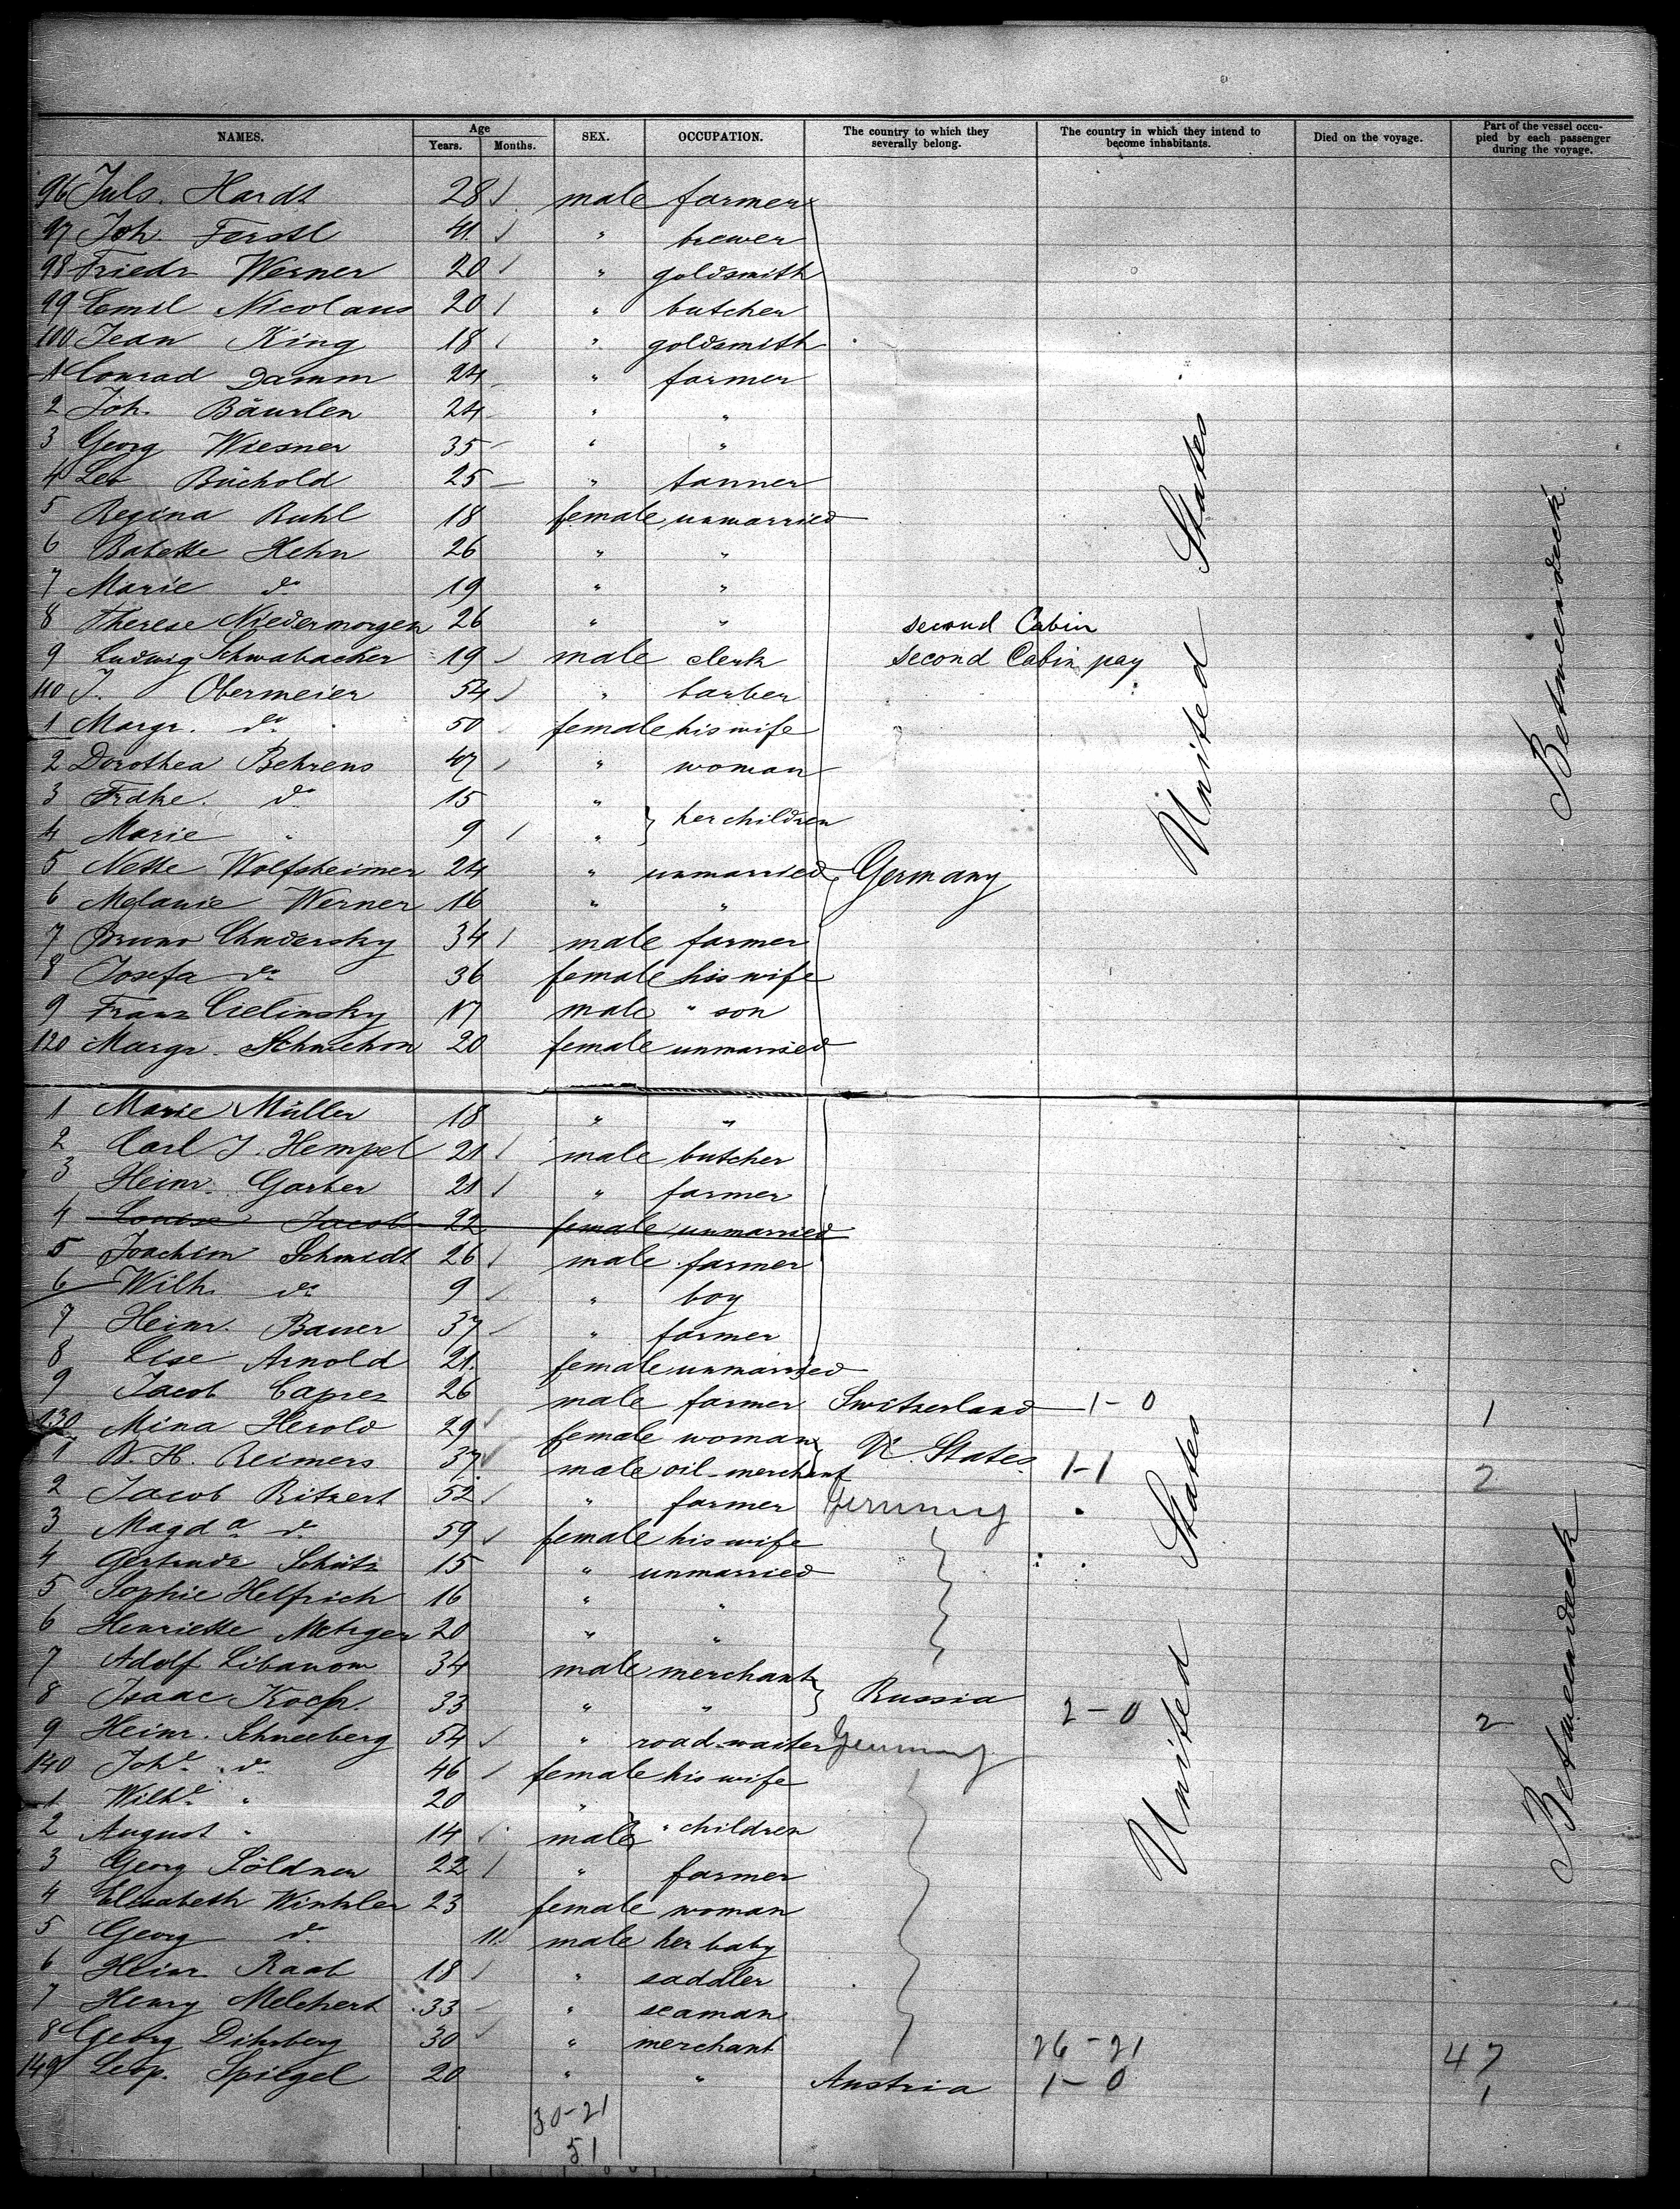 NAMES. Age Years. Months. SEX. OCCUPATION. The country to which they severally belong. The country in which they intend to become inhabitants. Died on the voyage. Part of the vessel occupied by each passenger during the voyage.
96 Juls. Hardt 28 male farmer
97 Joh. Ferstl 41 " brewer
98 Friedr Werner 20 " goldsmith
99 Emil Nicolaus 20 " butcher
100 Jean King 18 " goldsmith
1 Conrad Damm 24 " farmer
2 Joh. Bäurlen 24 " "
3 Georg Wiesner 35 " "
4 Leo Büchold 25 " tanner
5 Regina Ruhl 18 female unmarried
6 Babette Hehn 26 " "
7 Marie do 19 " "
8 Therese Niedermorgen 26 " " second Cabin
9 Ludwig Schwabacker 19 male clerk second Cabin pay
110 J. Obermeier 54 " barber
1 Margr. do 50 female his wife
2 Dorothea Behrens 47 " woman
3 Frdke. do 15 "
4 Marie " 9 " her children
5 Nette Wolfsheimer 24 " unmarried Germany
6 Melanie Werner 16 " "
7 Bruno Chudersky 34 male farmer
8 Josefa do 36 female his wife
9 Franz Cielinsky 17 male " son
120 Margr. Schmehon 20 female unmarried
United States
Betweendeck.
1 Marie Müller 18 " "
2 Carl J. Hempel 21 male butcher
3 Heinr. Garber 21 " farmer
4 Louise Jacob 22 female unmarried
5 Joachim Schmidt 26 male farmer
6 Wilh. do 9 " boy
7 Heinr. Bauer 37 " farmer
8 Lise Arnold 21 female unmarried
9 Jacob Caprez 26 male farmer Switzerland 1-0 1
130 Mina Herold 29 female woman U. States
1 B. H. Reimers 37 male oil-merchant 1-1 2
2 Jacob Ritzert 52 " farmer Germany
3 Magda do 59 female his wife
4 Gertrude Schütz 15 " unmarried
5 Sophie Helfrich 16 " "
6 Henriette Metzger 20 " "
7 Adolf Libanow 34 male merchant
8 Isaac 33 " " Russia 2-0 2
9 Heinr. Schneeberg 54 " road-waiter Germany
140 Johe do 46 female his wife
1 Wilhe " 20 "
2 August " 14 male " children
3 Georg Söldner 22 " farmer
4 Elisabeth Winkler 23 female woman
5 Georg do 11 male her baby
6 Heinr Raab 18 " saddler
7 Henry Melchert 33 " seaman
8 Georg Dihrberg 30 " merchant 26-21 47
149 Leop. Spilgel 20 " " Austria 1-0 1
United States
Betweendeck
30-21
51